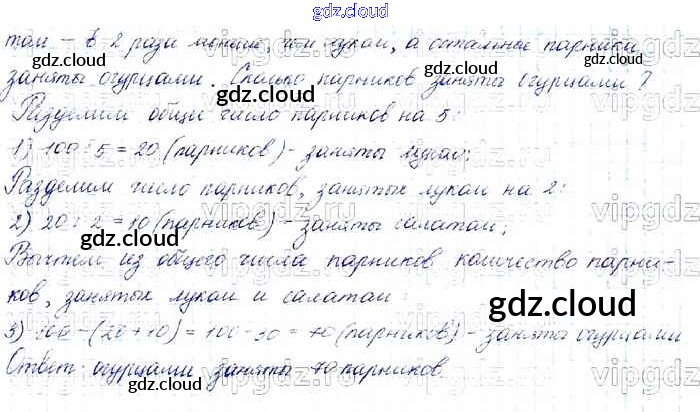 gdz.cloud
том – в 2 раза меньше, чем луком, а остальные парники
заняты огурцами. Сколько парников заняты огурцами?
gdz.cloud
Разделим общее число парников на 5:
1) 100 : 5 = 20 (парников) – заняты луком;
Разделим число парников, занятых луком на 2:
2) 20 : 2 = 10 (парников) – заняты салатом;
gdz.cloud
Вычтем из общего числа парников количество парни-
ков, занятых луком и салатом:
gdz.cloud
3) 100 – (20 + 10) = 100 – 30 = 70 (парников) – заняты огурцами
Ответ: огурцами заняты 70 парников.
gdz.cloud
gdz.cloud